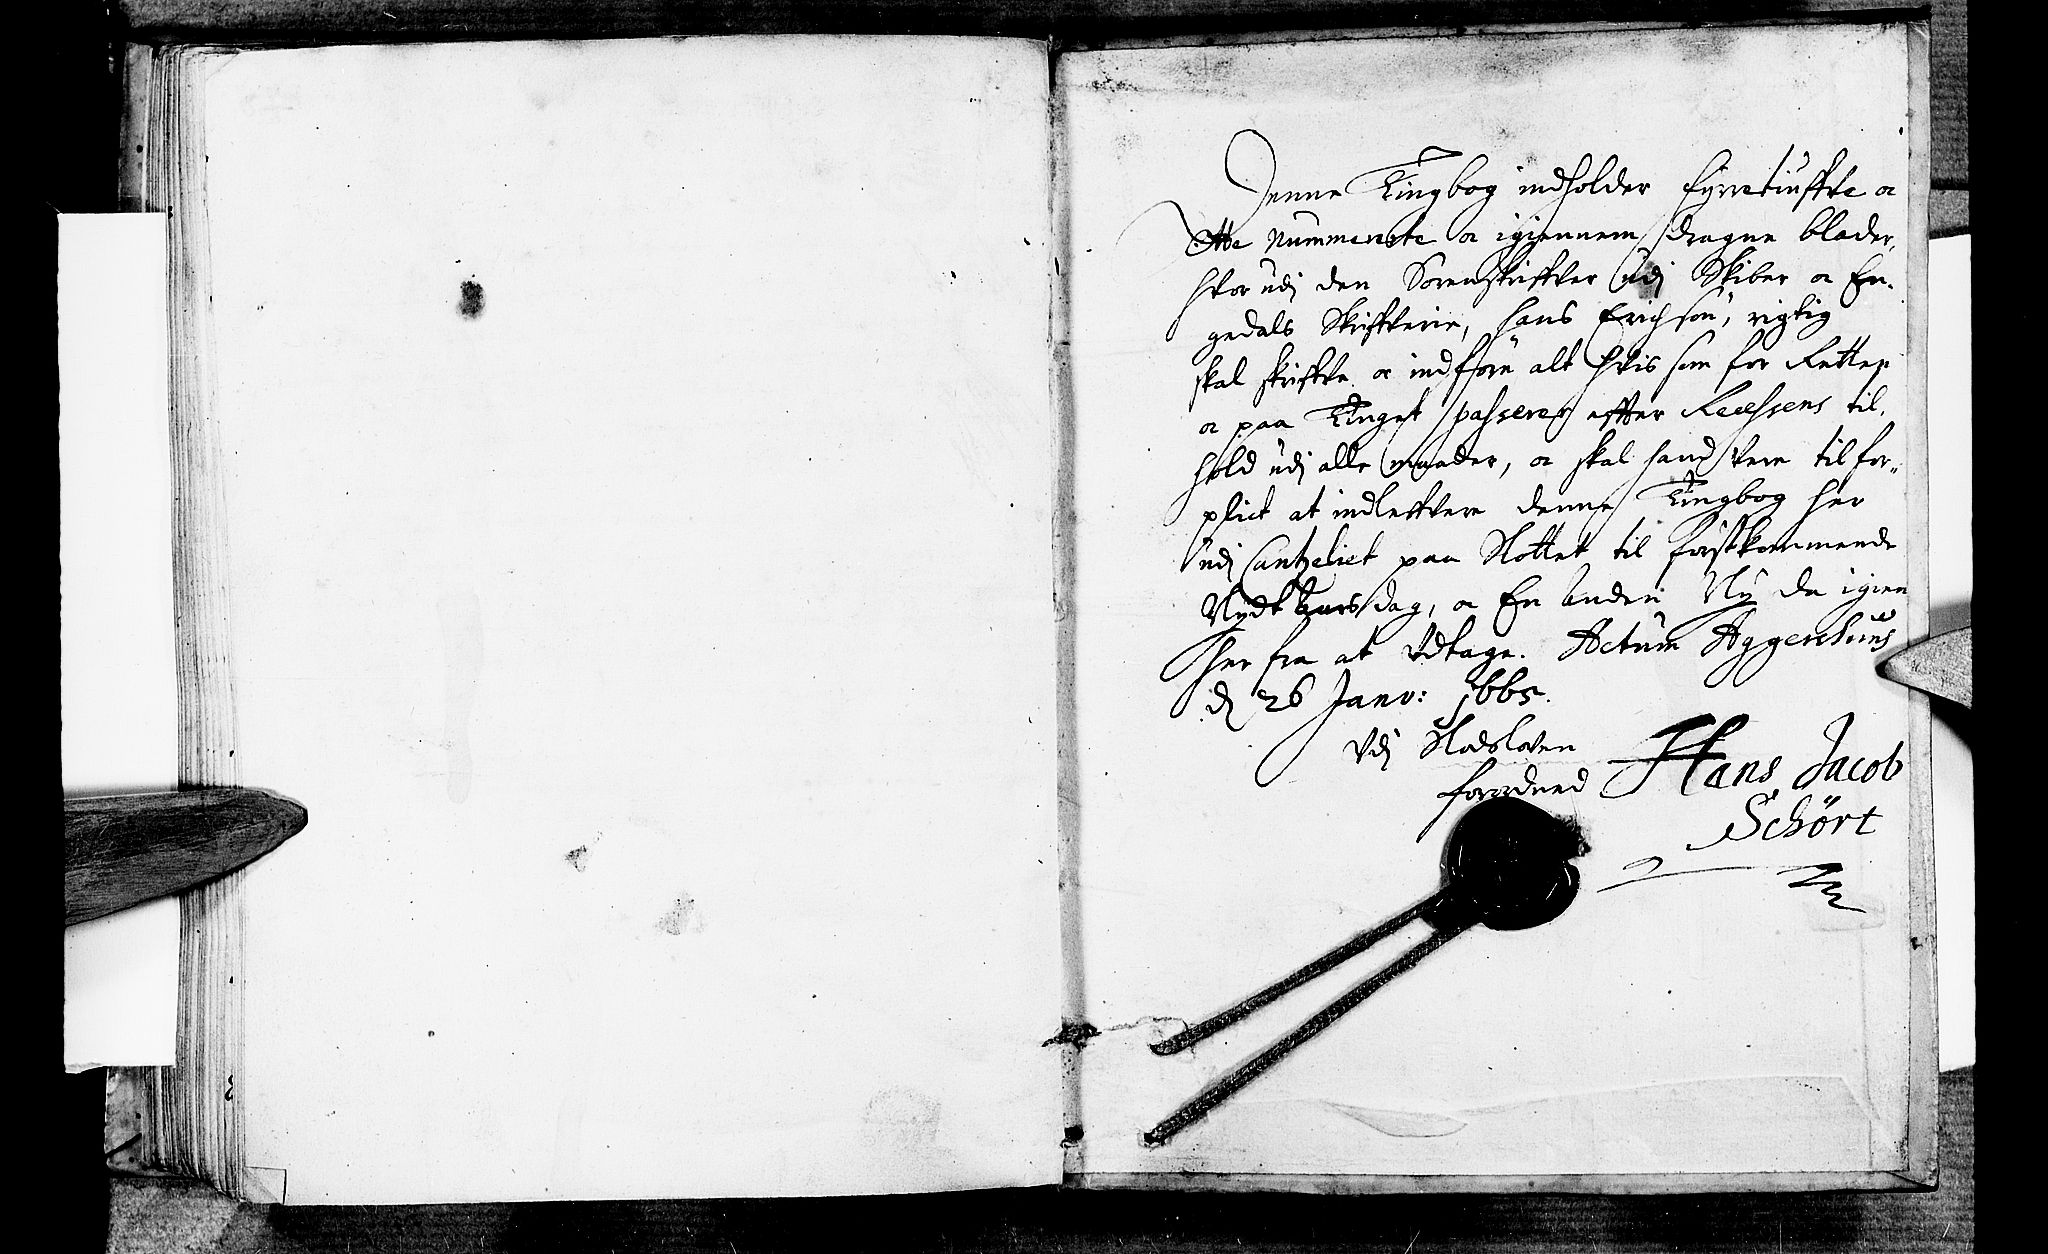 Denne Tingbog indholder fyrretiufþve oc
Otte Nummererte oc igiennem dragne blader,
hvor udj den Sorenskriffver udj Skiber oc En-
gedals Skriffverie, Hans Erichsøn, rigtig
skal skriffve oc indføre alt hvis som for Retten
oc paa Tinget passerer effter Recessens til-
hold udj alle maader, oc skal hand vere tilfor-
plict at indleffvere denne Tingbog her
udj Cantzeliet paa Slottet til førstkommende
Nydt Aarsdag, oc En anden Ny da igien
her fra at vdtage. Actum Aggershuus
dj 26 Janv: 1665.
Vdj Slodsloven
forordned Hans Jacob
Schört